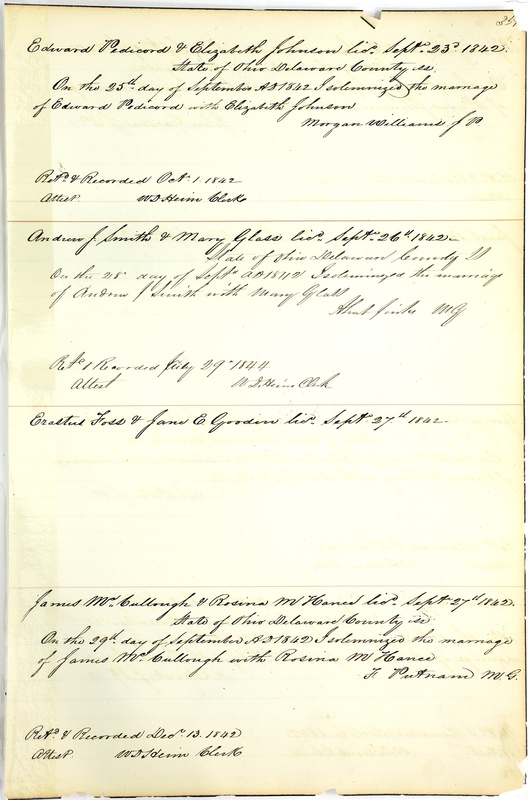 Edward Pedicord & Elizabeth Johnson licd. Sept. 23d. 1842.
State of Ohio Delaware County ss.
On the 25th day of September AD 1842 I solemnized the marriage
of Edward Pedicord with Elizabeth Johnson
Morgan Williams J P.
Retd. & Recorded Oct. 1. 1842
Attest. W D Heim Clerk
Andrew J. Smith & Mary Glass licd. Sept. 26th. 1842.
State of Ohio Delaware County SS
On the 28 day of Sept AD 1842 I solemnized the marriag
of Andrew J Smith with Mary Glass
MG
Retd & Recorded July 29th 1844
Attest W D Heim Clerk
Erastus Foss & Jane E. Gooden licd. Sept. 27th 1842
James Mc.Cullough & Rosina M Hance licd. Sept. 27th 1842.
State of Ohio Delaware County ss
On the 29th. day of September AD 1842 I solemnized the marriage
of James Mc.Cullough with Rosina M Hance
F. Putnam M. G.
Retd. & Recorded Dec. 13. 1842
Attest. W D Heim Clerk